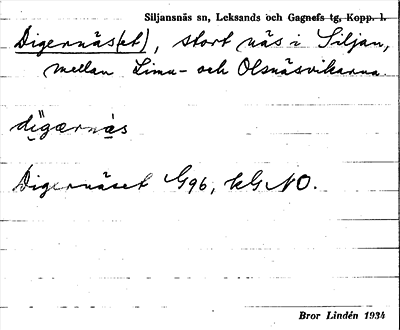 Siljansnäs sn, Leksands och Gagnefs tg, Kopp. l.
Digernäs(et), stort näs i Siljan,
mellan Lima- och Olsnäsvikarna.
digærnäs
Digernäset G96, kG NO.
Bror Lindén 1934